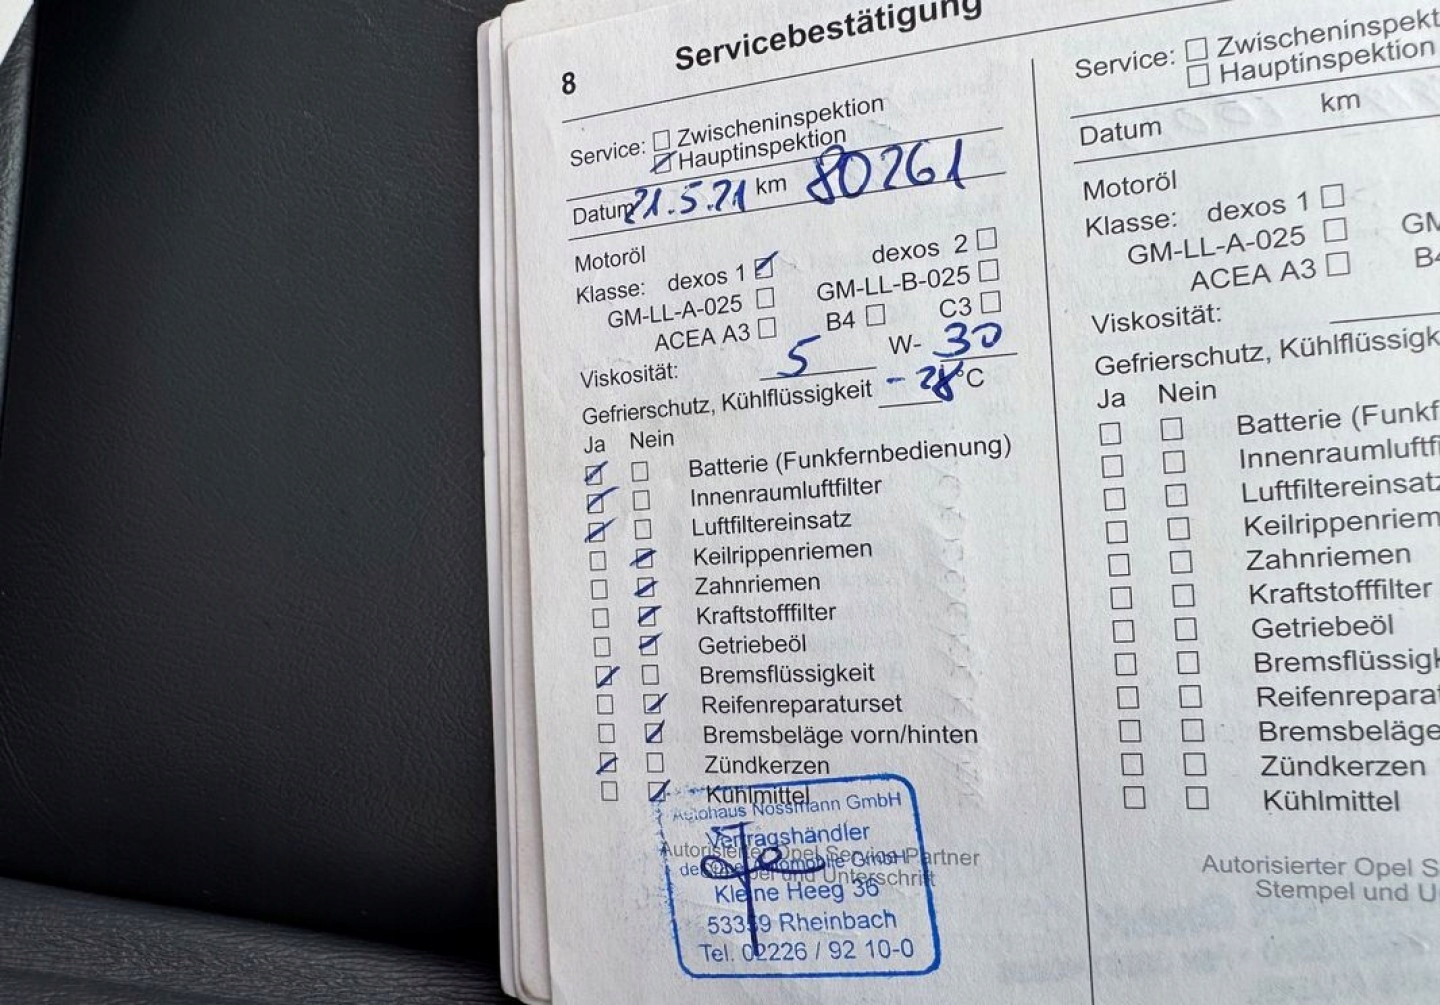 8
Servicebestätigung
Service: Zwischeninspektion
Hauptinspektion
Datum 21.5.21 km 80261
Motoröl
Klasse: dexos 1 dexos 2
GM-LL-A-025 GM-LL-B-025
ACEA A3 B4 C3
Viskosität: 5 W- 30
Gefrierschutz, Kühlflüssigkeit - 28 °C
Ja Nein
Batterie (Funkfernbedienung)
Innenraumluftfilter
Luftfiltereinsatz
Keilrippenriemen
Zahnriemen
Kraftstofffilter
Getriebeöl
Bremsflüssigkeit
Reifenreparaturset
Bremsbeläge vorn/hinten
Zündkerzen
Kühlmittel
Autohaus Nossmann GmbH
Vertragshändler
Autorisierter Opel Service Partner
der Opel Automobile GmbH
Stempel und Unterschrift
Kleine Heeg 36
53359 Rheinbach
Tel. 02226 / 92 10-0
Service: Zwischeninspekt
Hauptinspektion
Datum km
Motoröl
Klasse: dexos 1
GM-LL-A-025 GM
ACEA A3 B4
Viskosität:
Gefrierschutz, Kühlflüssigk
Ja Nein
Batterie (Funkf
Innenraumluftf
Luftfiltereinsatz
Keilrippenriem
Zahnriemen
Kraftstofffilter
Getriebeöl
Bremsflüssigk
Reifenrepara
Bremsbeläge
Zündkerzen
Kühlmittel
Autorisierter Opel S
Stempel und U